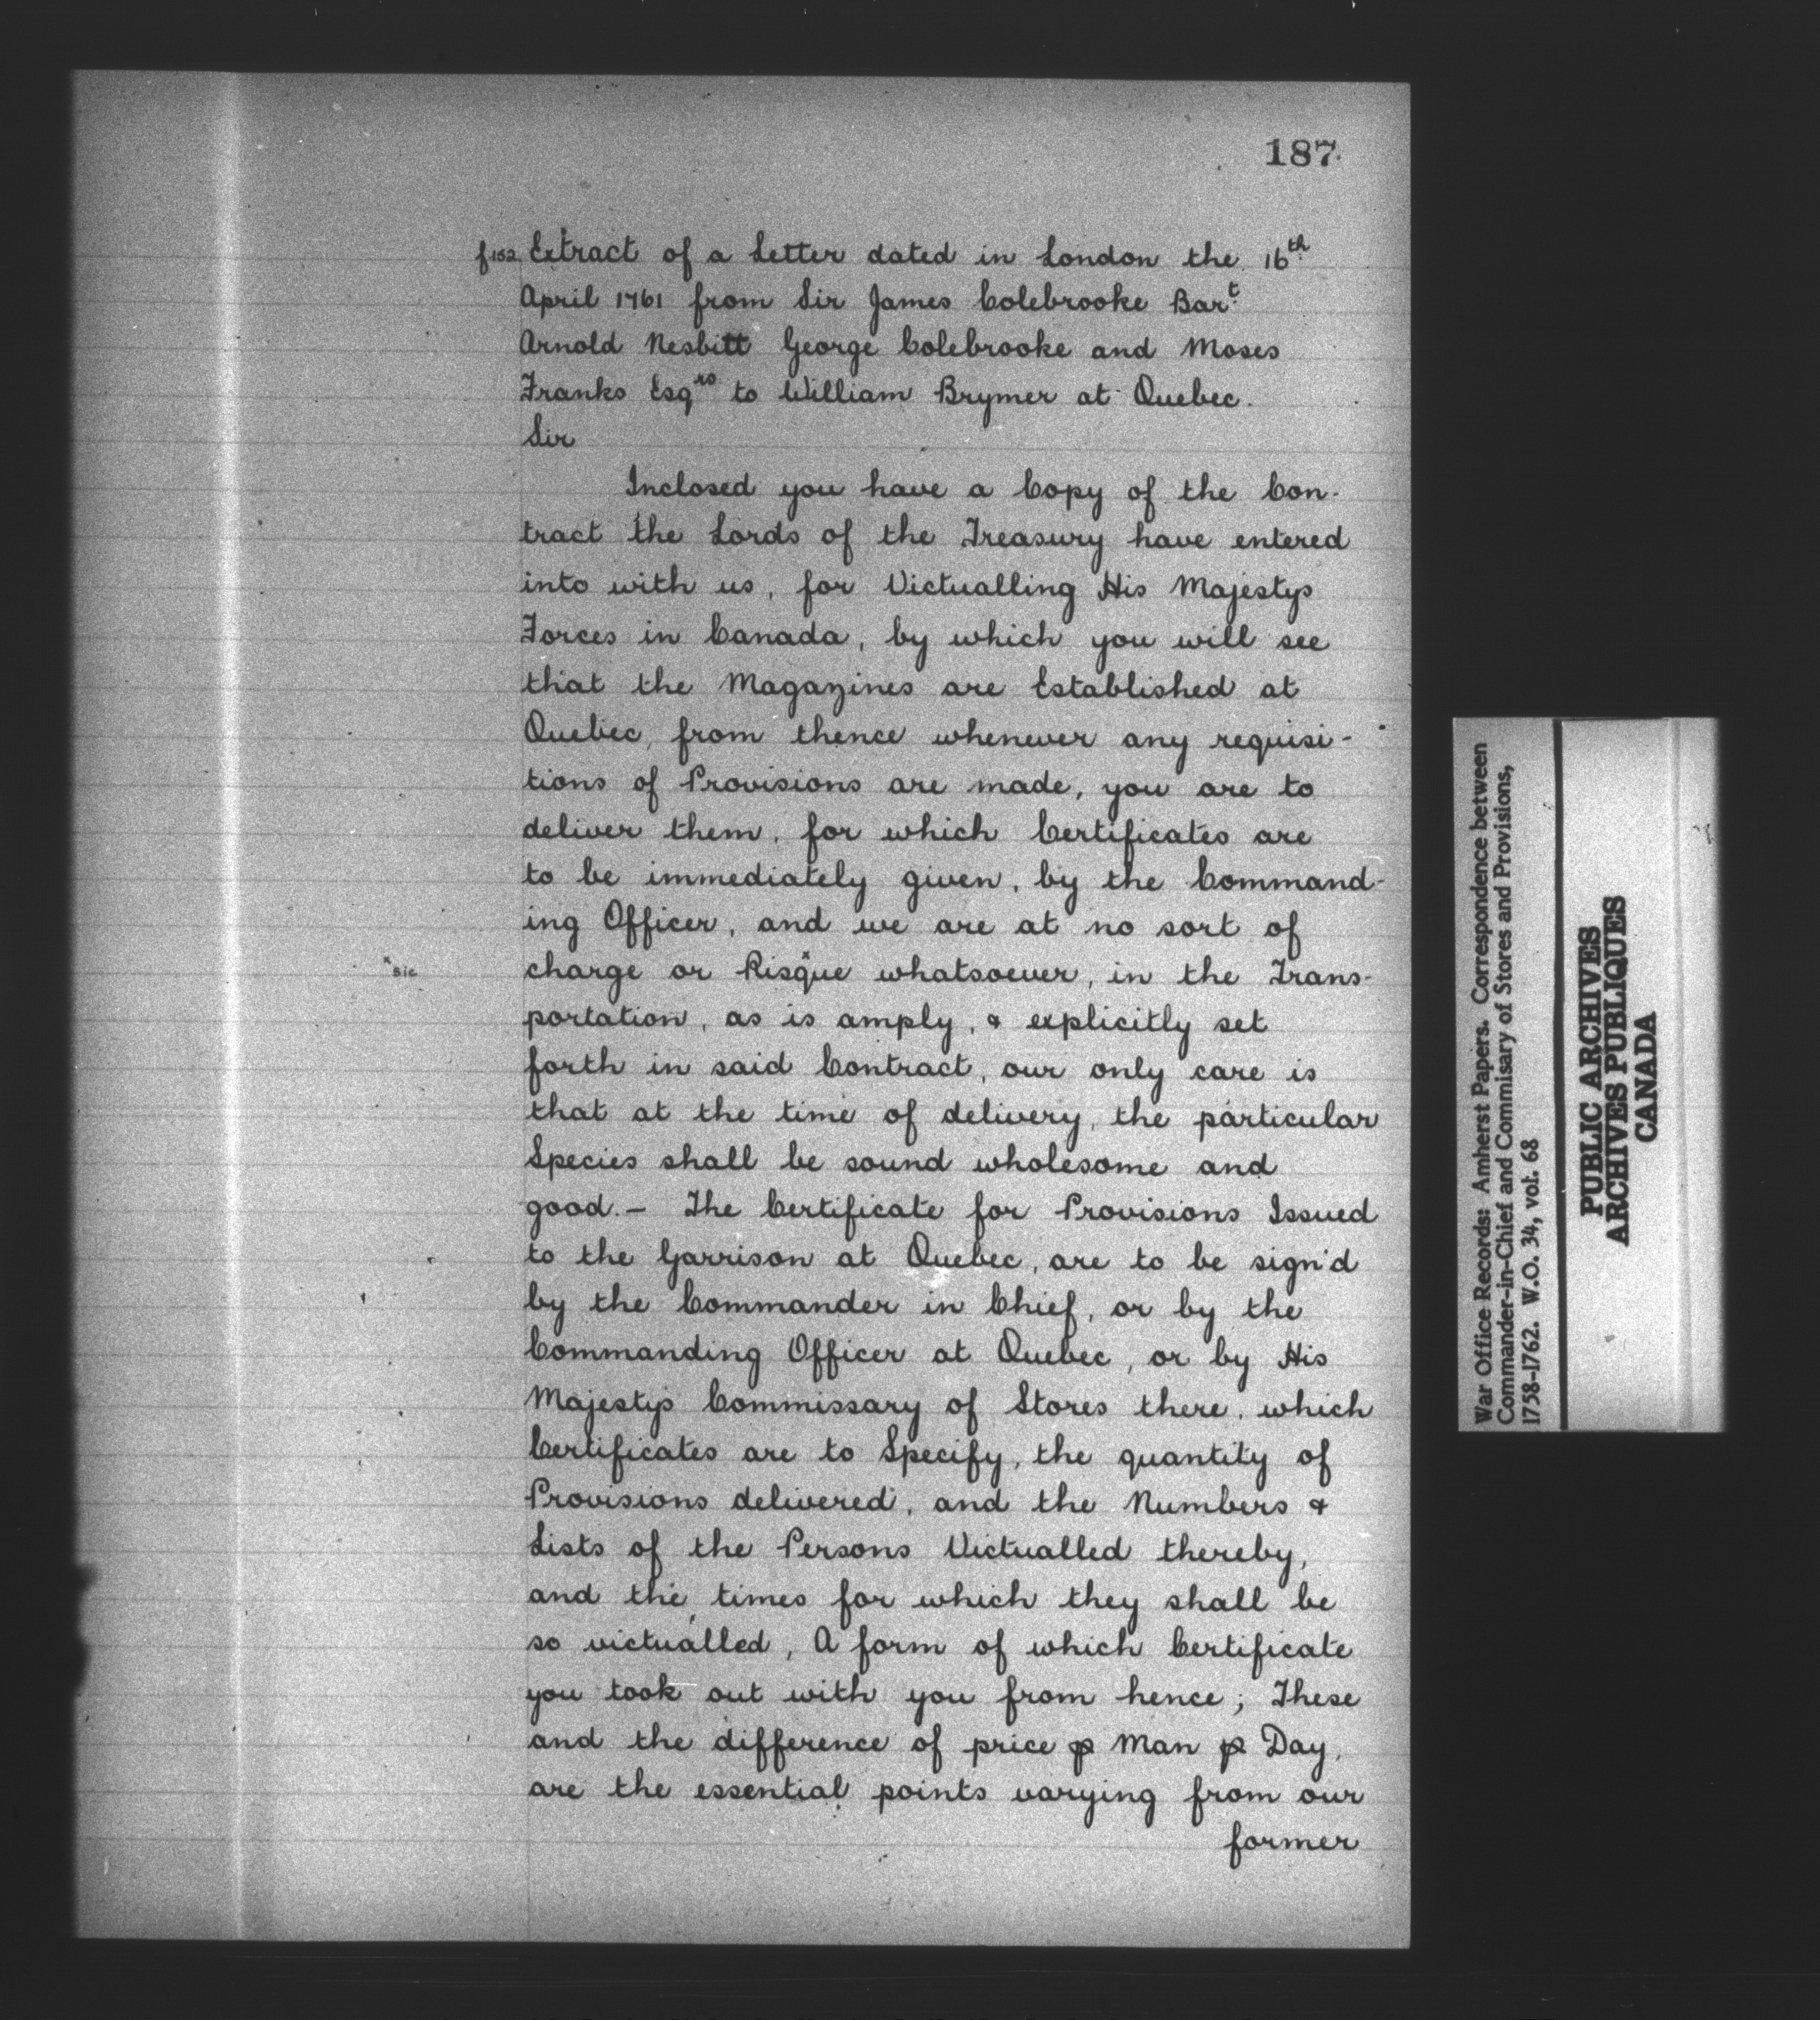 187
f152 Extract of a Letter dated in London the 16th
April 1761 from Sir James Colebrooke Bart
Arnold Nesbitt George Colebrooke and Moses
Franks Esqrs to William Brymer at Quebec.
Sir
Inclosed you have a Copy of the Con-
tract the Lords of the Treasury have entered
into with us, for Victualling His Majestys
Forces in Canada, by which you will see
that the Magazines are Established at
Quebec, from thence whenever any requisi-
tions of Provisions are made, you are to
deliver them, for which Certificates are
to be immediately given, by the Command-
ing Officer, and we are at no sort of
x sic
charge or Risque whatsoever, in the Trans-
portation, as is amply, & explicitly set
forth in said Contract, our only care is
that at the time of delivery, the particular
Species shall be sound wholesome and
good.- The Certificate for Provisions Issued
to the Garrison at Quebec, are to be sign'd
by the Commander in Chief, or by the
Commanding Officer at Quebec, or by His
Majestys Commissary of Stores there, which
Certificates are to Specify, the quantity of
Provisions delivered, and the Numbers &
Lists of the Persons Victualled thereby,
and the times for which they shall be
so victualled, A form of which Certificate
you took out with you from hence; These
and the difference of price ⅌ Man ⅌ Day,
are the essential points varying from our
former
War Office Records: Amherst Papers. Correspondence between
Commander-in-Chief and Commisary of Stores and Provisions,
1758-1762. W.O. 34, vol. 68
PUBLIC ARCHIVES
ARCHIVES PUBLIQUES
CANADA